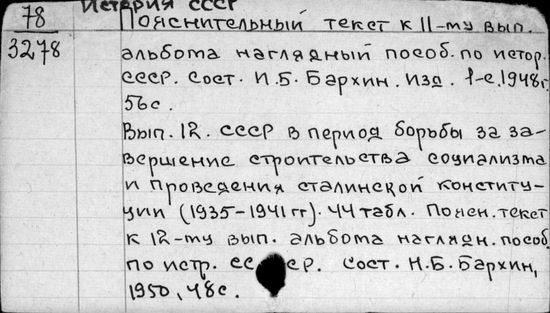 История СССР
78
3278
Пояснительный текст к 11-му вып.
альбома наглядный пособ. по истор.
СССР. Сост. И.Б. Бархин. Изд. 1-е. 1948г.
56с.
Вып. 12. СССР в период борьбы за за-
вершение строительства социализма
и проведения сталинской конститу-
ции (1935-1941гг). 44 табл. Поясн. текст
к 12-му вып. альбома наглядн. пособ.
по истр. СССР. Сост. И.Б. Бархин,
1950, 48с.